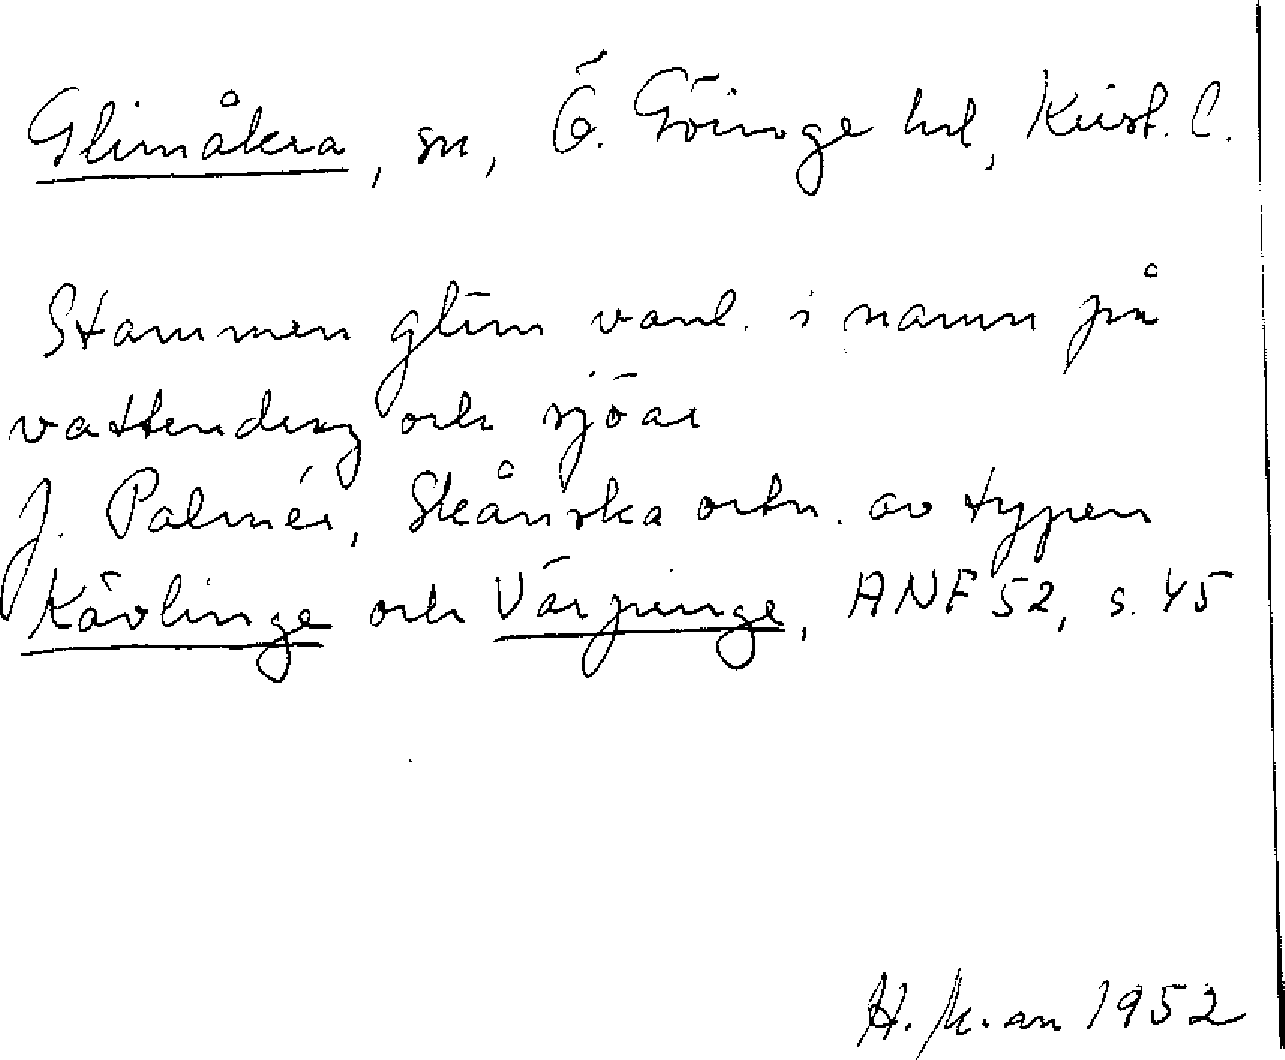 Glimåkra, sn, Ö. Göinge hd, Krist. l.
Stammen glim vanl. i namn på
vattendrag och sjöar
J. Palmér, Skånska ortn. av typen
Kävlinge och Värpinge, ANF 52, s. 45
H. k:an 1952